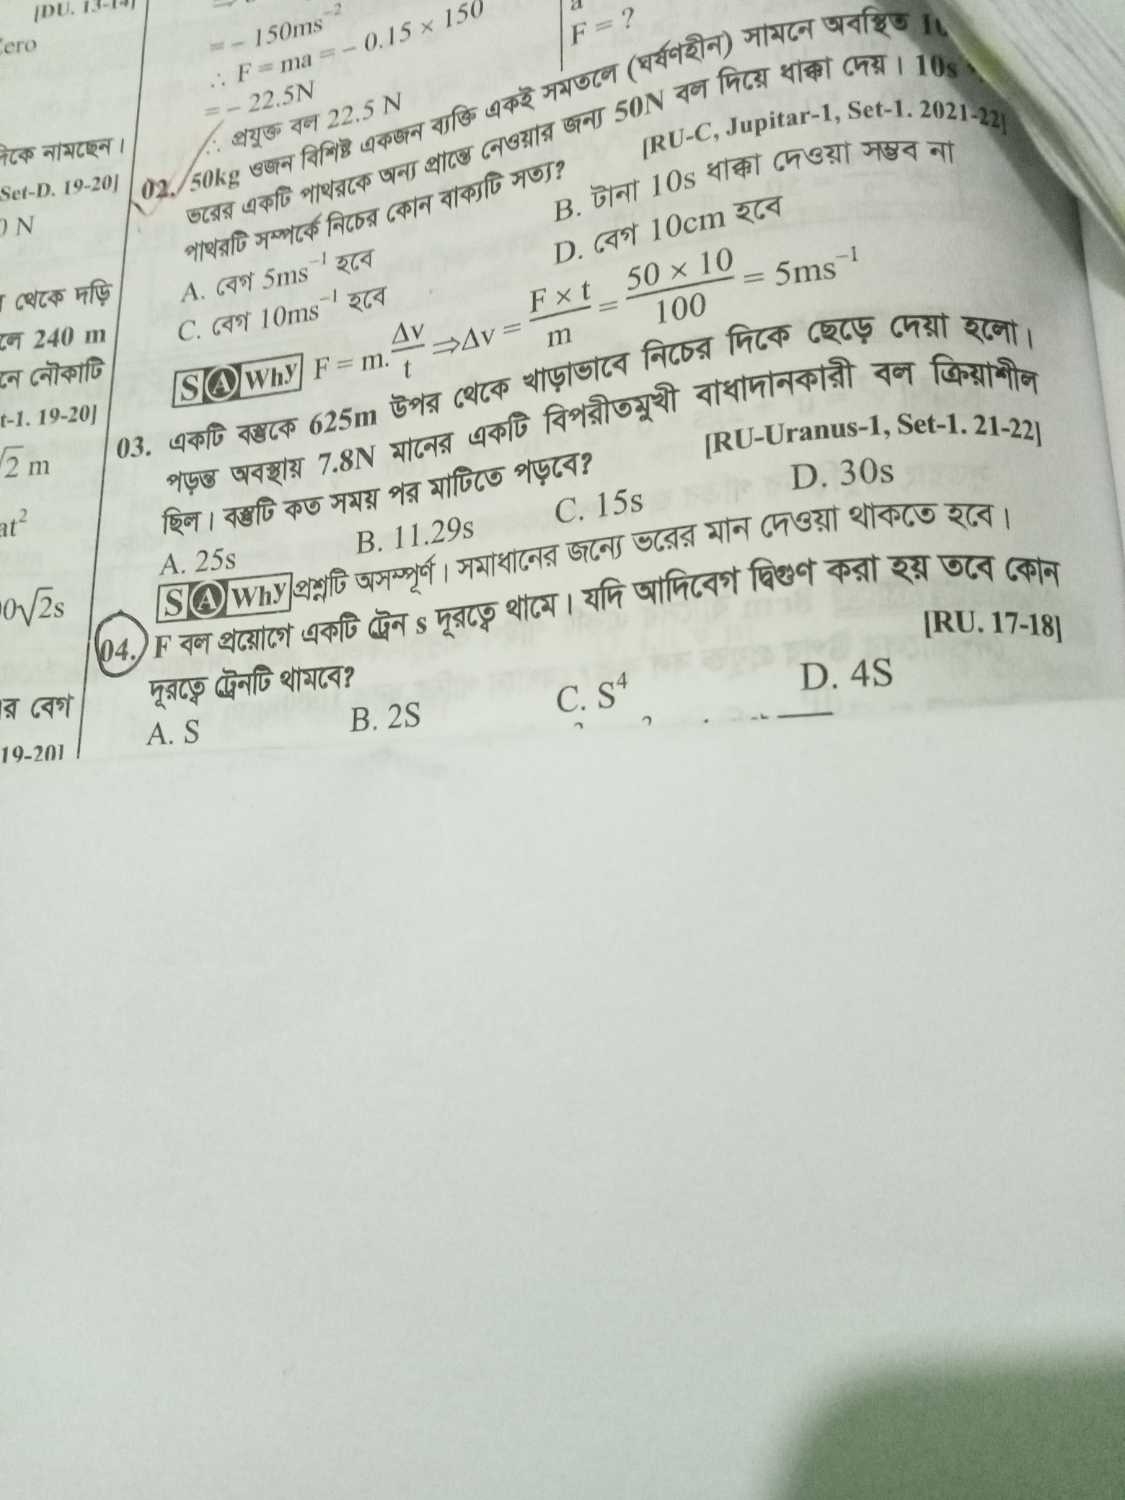 [DU. 13-14]
ero
েকে নামছেন।
Set-D. 19-20]
N
থেকে দড়ি
240 m
নৌকাটি
t-1. 19-20]
√2 m
at²
0√2s
র বেগ
19-20]
= – 150ms⁻²
∴ F = ma = – 0.15 × 150
= – 22.5N
∴ প্রযুক্ত বল 22.5 N
F = ?
02. 50kg ওজন বিশিষ্ট একজন ব্যক্তি একই সমতলে (ঘর্ষণহীন) সামনে অবস্থিত
ভরের একটি পাথরকে অন্য প্রান্তে নেওয়ার জন্য 50N বল দিয়ে ধাক্কা দেয়। 10s
পাথরটি সম্পর্কে নিচের কোন বাক্যটি সত্য?
[RU-C, Jupitar-1, Set-1. 2021-22]
A. বেগ 5ms⁻¹ হবে B. টানা 10s ধাক্কা দেওয়া সম্ভব না
C. বেগ 10ms⁻¹ হবে D. বেগ 10cm হবে
S A Why F = m. Δv/t ⇒ Δv = F × t/m = 50 × 10/100 = 5ms⁻¹
03. একটি বস্তুকে 625m উপর থেকে খাড়াভাবে নিচের দিকে ছেড়ে দেয়া হলো।
পড়ন্ত অবস্থায় 7.8N মানের একটি বিপরীতমুখী বাধাদানকারী বল ক্রিয়াশীল
ছিল। বস্তুটি কত সময় পর মাটিতে পড়বে? [RU-Uranus-1, Set-1. 21-22]
A. 25s B. 11.29s C. 15s D. 30s
S A Why প্রশ্নটি অসম্পূর্ণ। সমাধানের জন্যে ভরের মান দেওয়া থাকতে হবে।
04. F বল প্রয়োগে একটি ট্রেন s দূরত্বে থামে। যদি আদিবেগ দ্বিগুণ করা হয় তবে কোন
দূরত্বে ট্রেনটি থামবে? [RU. 17-18]
A. S B. 2S C. S⁴ D. 4S